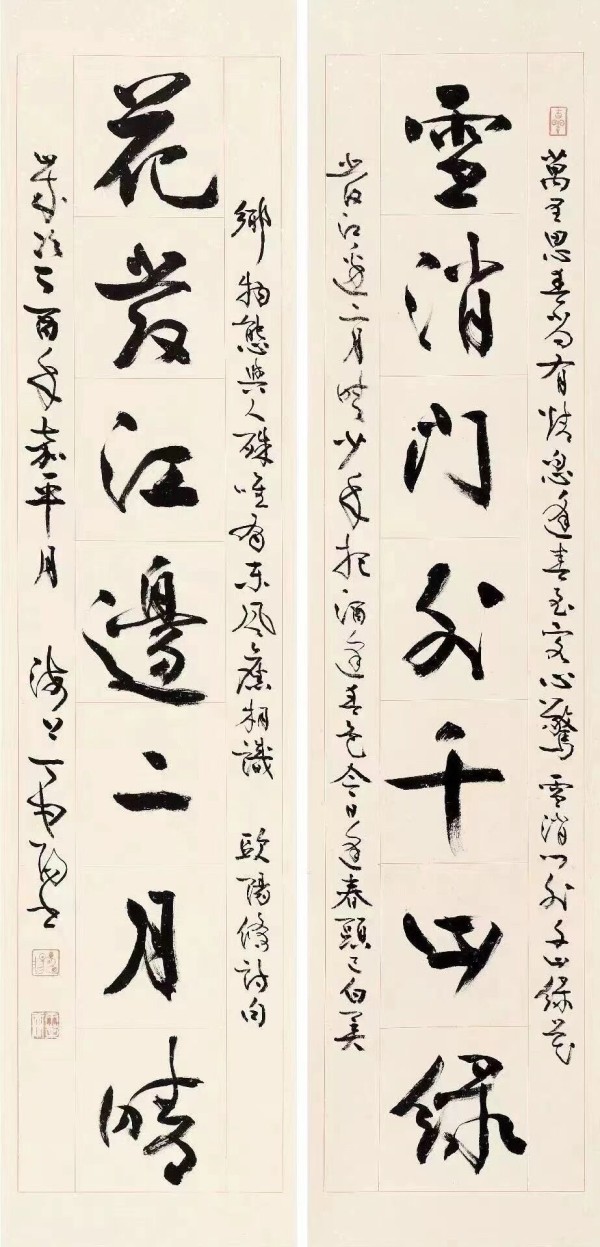 萬里思春尚有情忽逢春至客心驚雪消門外千山綠花
雪消門外千山綠
發江邊二月晴少年把酒逢春色今日逢春頭已白異
鄉物態與人殊唯有東風舊相識 歐陽修詩句
花發江邊二月晴
歲次丁酉年嘉平月 海上丁申陽書